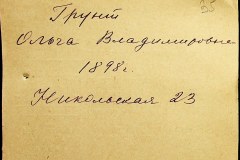 35
Грунт
Ольга Владимировне
1898 г.
Никольская 23